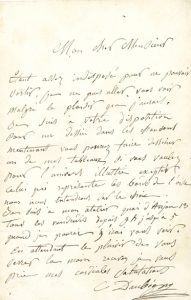 Mon cher Monsieur
Etant assez indisposé pour ne pouvoir
sortir, je ne puis aller vous voir
malgré le plaisir que j'aurais.
Je suis à votre disposition
pour un dessin dans les
maintenant vous pouvez faire dessiner
un de mes tableaux, si vous voulez
pour l'avoir
celui qui représente les bords de l'oise
nous nous entendrons sur le
Je suis à mon atelier quai d'Anjou 13
tous les vendredis depuis 9h jusqu'à 5
quand je pourrai j'irai vous voir.
En attendant le plaisir de vous
serrer la main recevez je vous
prie mes cordiales salutations
C. Daubigny